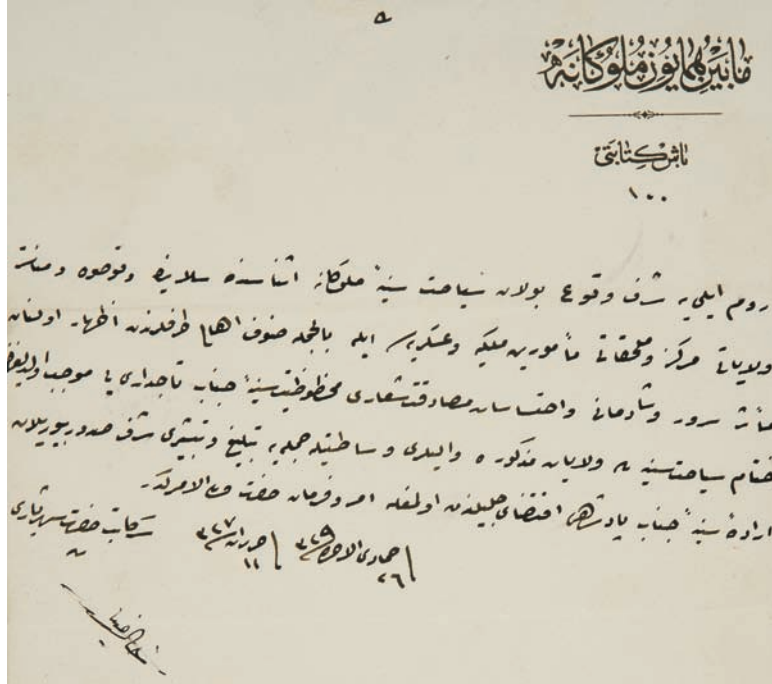 ٥
مابين همايون ملوكانه
باش كتابتى
١٠٠
روم ايلى يه شرف وقوع بولان سياحت سنيۀ ملوكانه اثناسنده سلانيك وقوصوه ومناستر
ولاياتى مركز وملحقاتى مأمورين ملكيه وعسكريه سى ايله بالجمله صنوف اهالى طرفلرندن اظهار اولنان
مآثر سرور وشادمانى واحتساسات صداقتشعارى محظوظيت سنيۀ جناب تاجدارى يى موجب اولديغنك
ختام سياحت سنيه ده ولايات مذكوره واليلرى وساطتيله جمله يه تبليغ وتبشيرى شرفصدور بيوريلان
ارادۀ سنيۀ جناب پادشاهى اقتضاى جليلندن اولمغله امر وفرمان حضرت من له الامركدر
٢٦ جمادى الاخره ٣٢٩
١١ حزيران ٣٢٧
سركاتب حضرت شهريارى